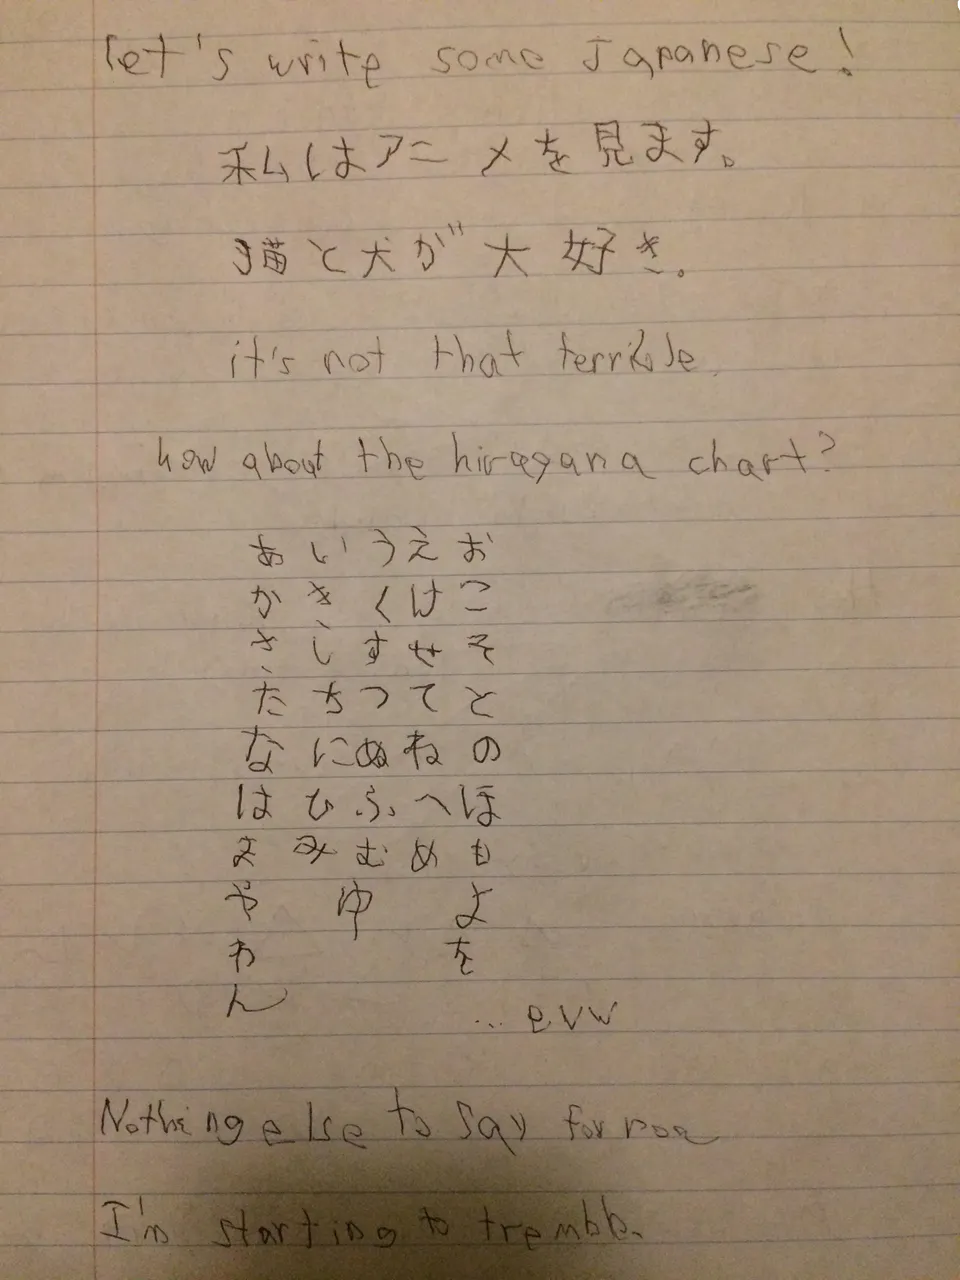 Let's write some Japanese!
私はアニメを見ます。
猫と犬が大好き。
it's not that terrible.
how about the hiragana chart?
あいうえお
かきくけこ
さしすせそ
たちつてと
なにぬねの
はひふへほ
まみむめも
や ゆ よ
わ を
ん ... eww
Nothing else to say for now
I'm starting to tremble.